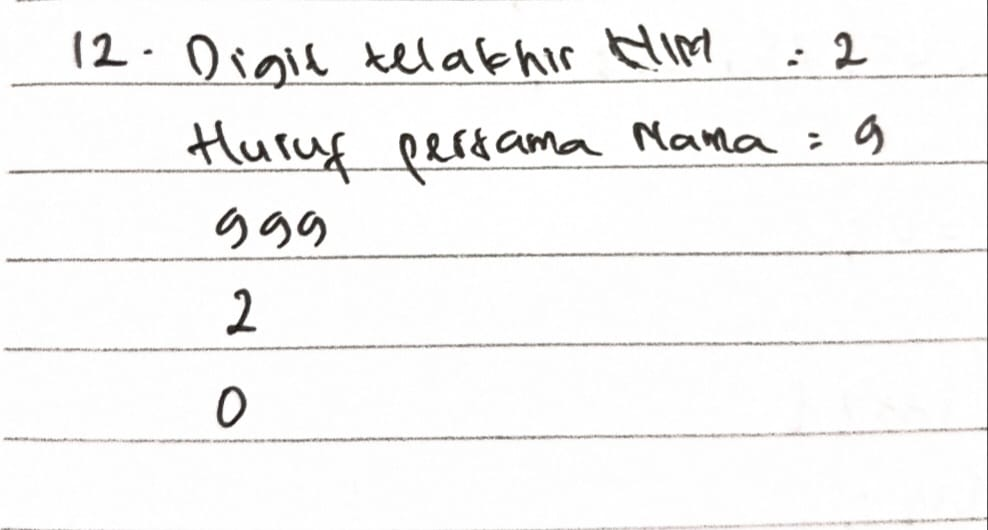 12. Digit telakhir NIM : 2
Huruf pertama Nama = 9
999
2
0